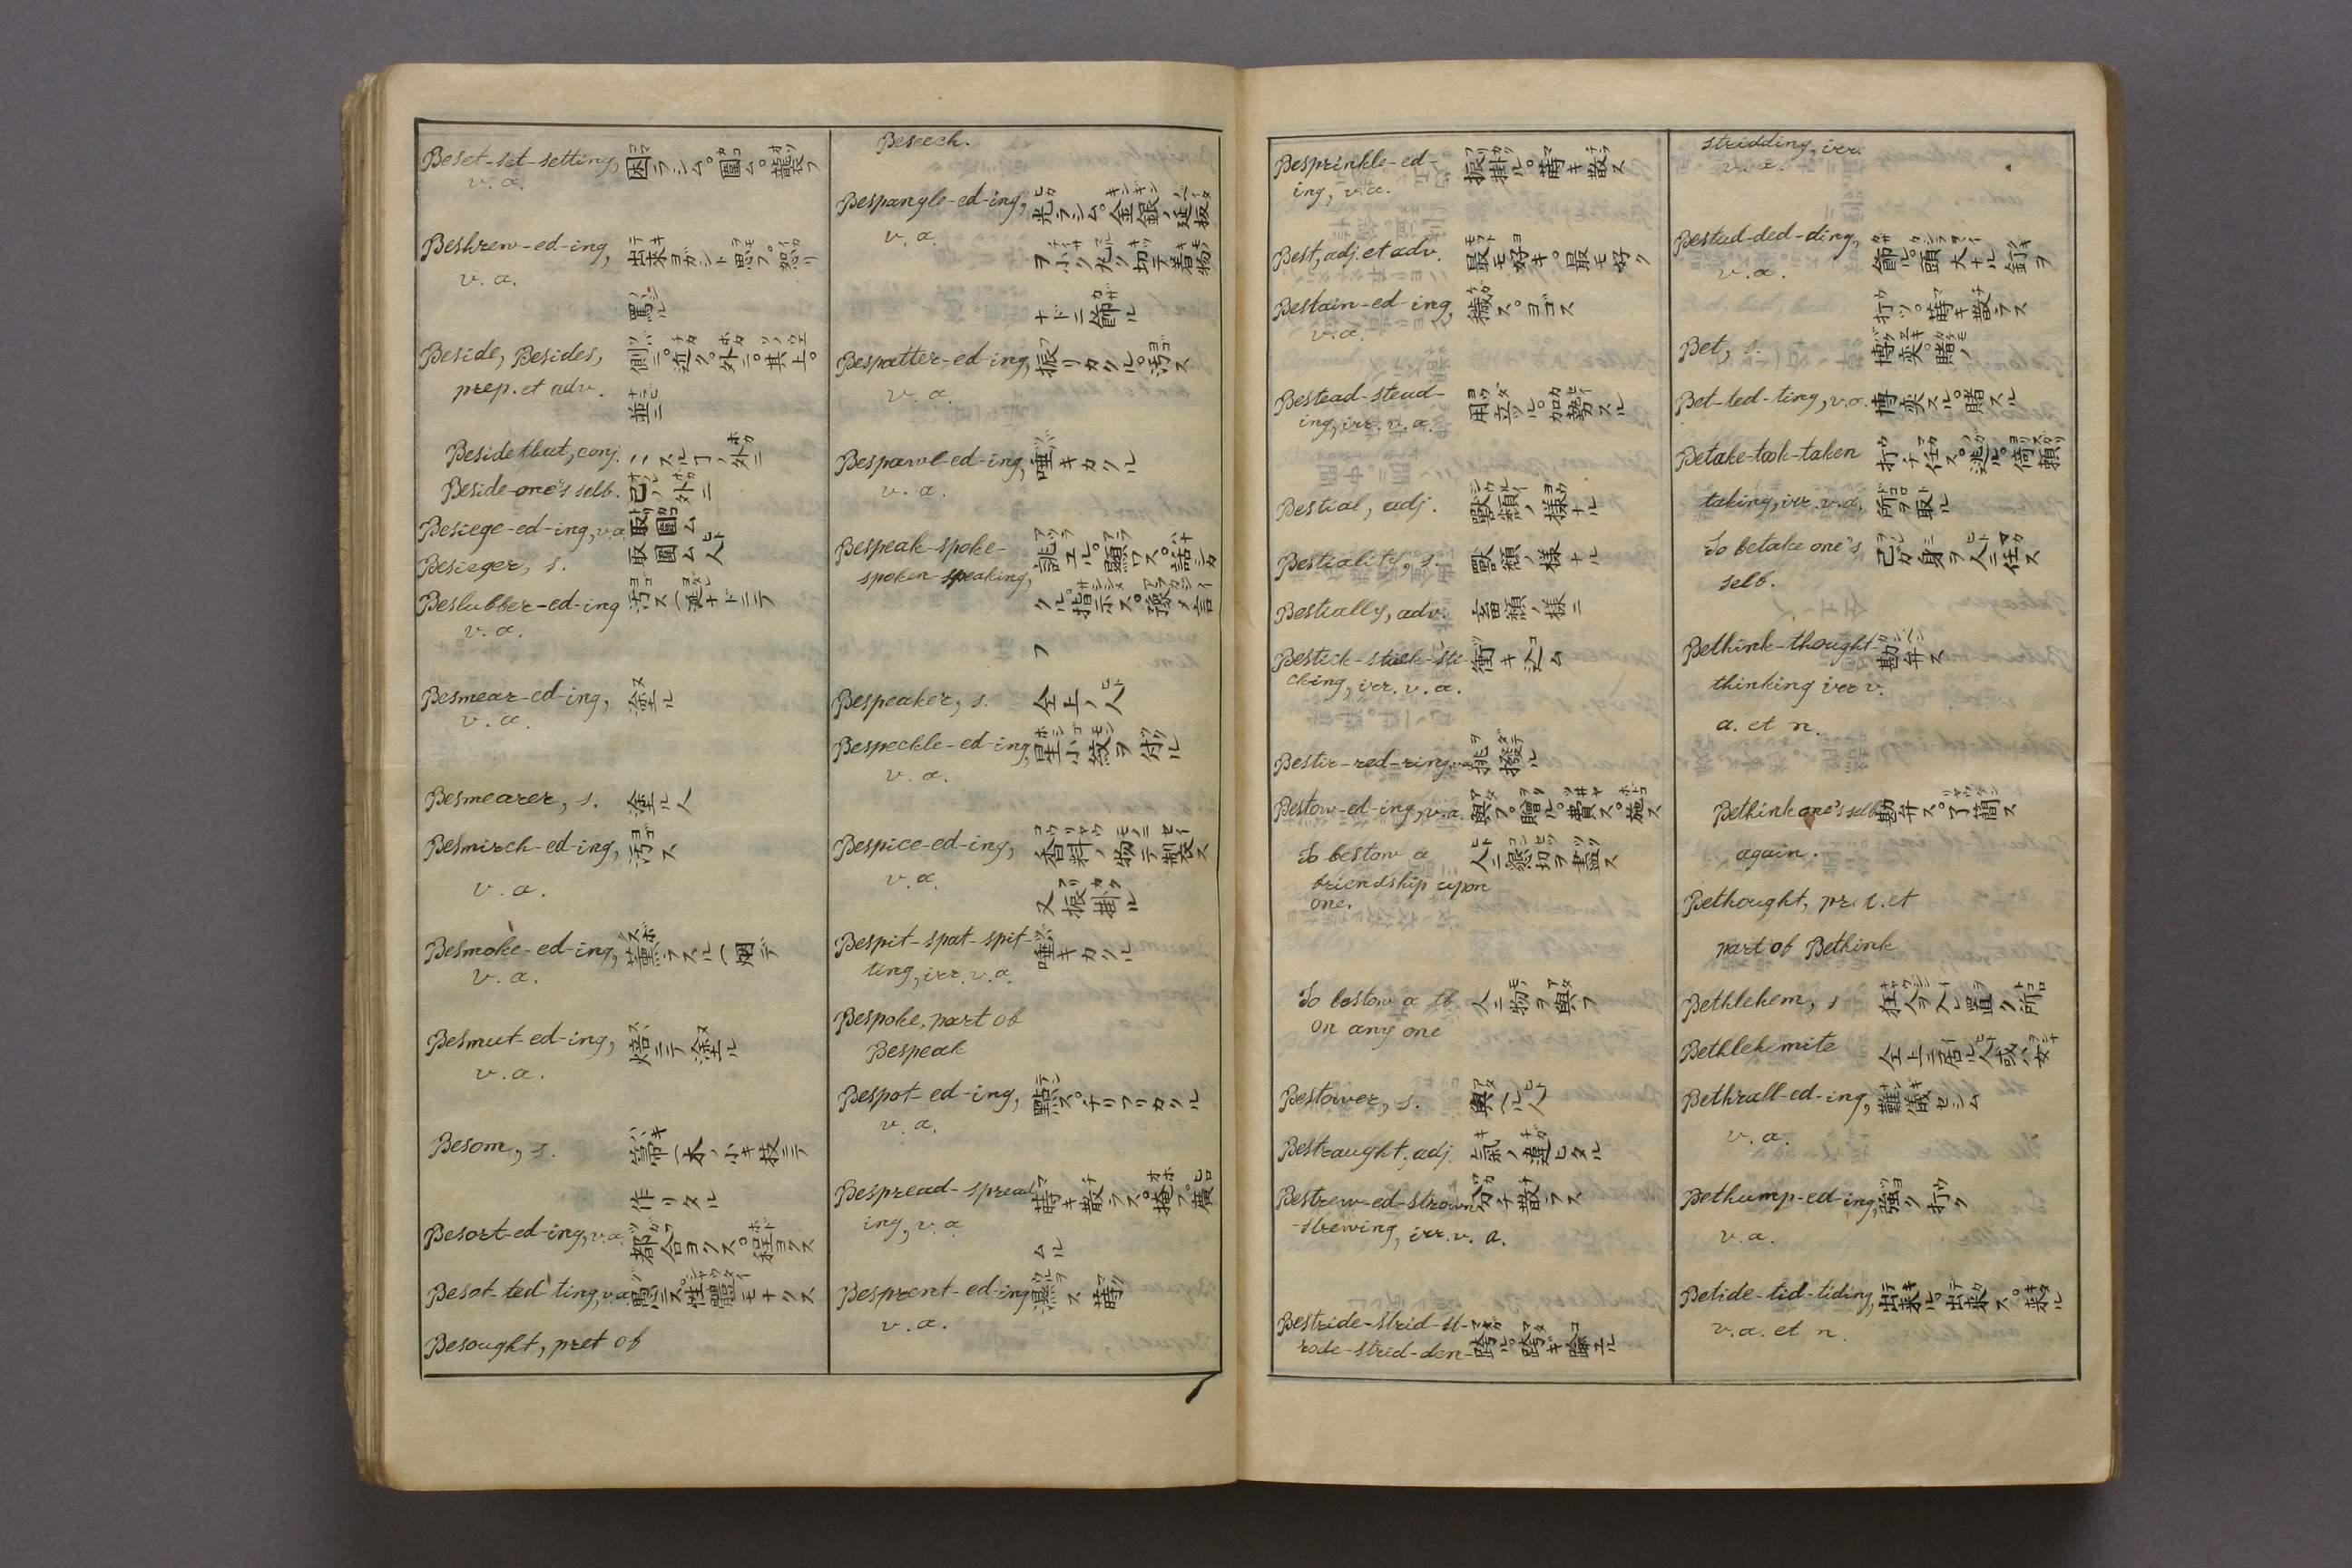 Beset-set-setting, 困ラシム。圍ム。襲フ
v.a.
Beshrew-ed-ing, 出来ヨガシト思フ。怒リ
v.a.
罵ル
Beside, Besides, 側ニ。近ク。外ニ。其上。
prep. et adv. 並ニ
Beside that, conj. 外ニ
Beside one's self. 己ノ外ニ
Besiege-ed-ing, v.a. 取圍ム
Besieger, s. 取圍ム人
Beslubber-ed-ing 汚ス(涎ナドニテ
v.a.
Besmear-ed-ing, 塗ル
v.a.
Besmearer, s. 塗ル人
Besmirch-ed-ing, 汚ス
v.a.
Besmoke-ed-ing, 薫ラスル(烟デ
v.a.
Besmut-ed-ing, 焙ニテ塗ル
v.a.
Besom, s. 箒(木ノ小キ枝ニテ
作リタル
Besort-ed-ing, v.a. 都合ヨクス。程ヨクス
Besot-ted-ting, v.a. 愚ニス。性體モナクス
Besought, pret of
Beseech.
Bespangle-ed-ing, 光ラシム。金銀ノ延板
v.a.
ヲ小ク丸ク切テ着物
ナドニ飾ル
Bespatter-ed-ing, 振リカクル。汚ス
v.a.
Bespawl-ed-ing, 唾キカクル
v.a.
Bespeak-spoke- 誂エル。顯ワス。話シカ
spoken-speaking, クル。指示ス。豫メ言
フ
Bespeaker, s. 仝上ノ人
Bespeckle-ed-ing, 星小紋ヲ付ル
v.a.
Bespice-ed-ing, 香料ノ物ニテ製ス
v.a.
又振掛ル
Bespit-spat-spit- 唾キカクル
ting, irr. v.a.
Bespoke, part of
Bespeak
Bespot-ed-ing, 點ス。チリフリカクル
v.a.
Bespread-spread 蒔キ散ラス。掩フ。廣
ing, v.a.
ムル
Besprent-ed-ing 濕ス 蒔ク
v.a.
Besprinkle-ed- 振掛ル。蒔キ散ス
ing, v.a.
Best, adj. et adv. 最モ好キ。最モ好ク
Bestain-ed-ing, 穢ス。ヨゴス
v.a.
Bestead-stead- 用立ツル。加勢スル
ing, irr. v.a.
Bestial, adj. 獸類ノ様ナル
Bestiality, s. 獸類ノ様ナル
Bestially, adv. 畜類ノ様ニ
Bestick-stuck-sti- 衝キ込ム
cking, irr. v.a.
Bestir-red-ring, v.a. 挑撥ル
Bestow-ed-ing, v.a. 與フ。贈ル。費ス。施ス
To bestow a 人ニ懇切ヲ盡ス
friendship upon
one.
To bestow a 人ニ物ヲ與フ
on any one
Bestower, s. 與ヘル人
Bestraught, adj. 氣ノ違ヒタル
Bestrew-ed-strown 分チ散ラス
-strewing, irr. v. a.
Bestride-strid-st- 跨ル。跨ギ踰エル
rode-strid-den-
stridding, irr.
v.a.
Bestud-ded-ding, 飾ル。頭大ナル釘ヲ
v.a.
打ツ。蒔キ散ラス
Bet, s. 博奕。賭ノ
Bet-ted-ting, v.a. 博奕スル。賭スル
Betake-took-taken 打チ任ス。逃ル。倚頼
taking, irr. v.a. 所ヲ取ル
To betake one's 己ガ身ヲ人ニ任ス
self.
Bethink-thought- 勘弁ス
thinking irr v.
a. et n.
Bethink one's self 勘弁ス。了簡ス
again.
Bethought, pret. et
part of Bethink
Bethlehem, s 狂人ヲ入レ置ク所
Bethlehemite 仝上ニ居ル人或ハ女
Bethrall-ed-ing, 難儀セシム
v.a.
Bethump-ed-ing, 強ク打ツ
v.a.
Betide-tid-tiding, 出来ル。出来ス。来ル
v.a. et n.